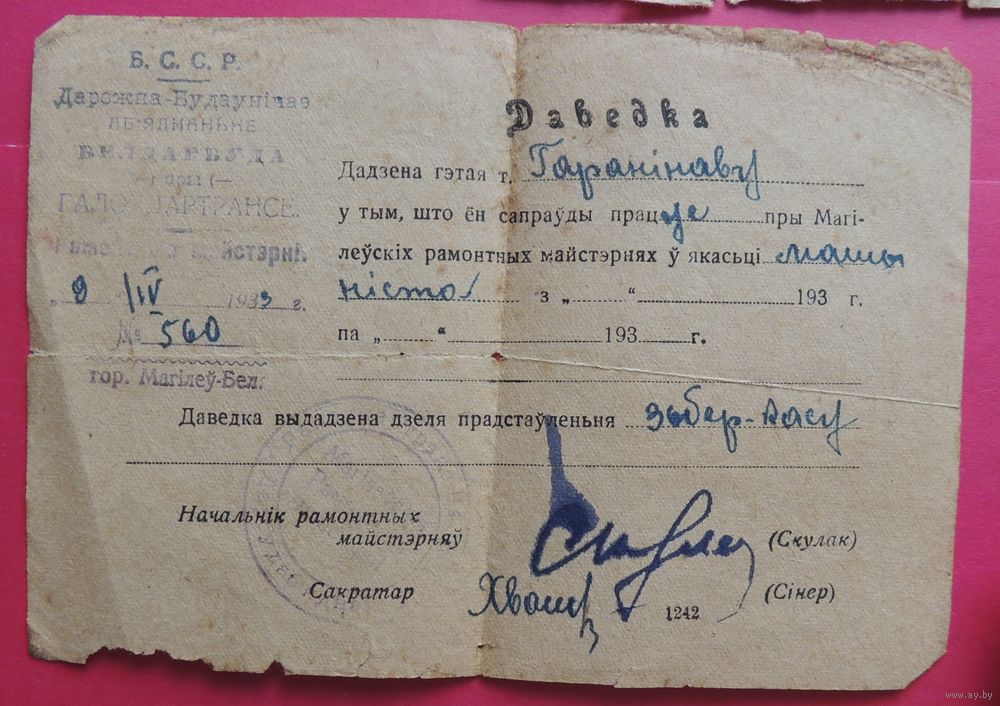 Б. С. С. Р.
Дарожна-Будаўнічае
аб'яднаньне
БЕЛДАРБУДА
пры
майстэрні.
„ 9 " /IV 1933 г.
№ 560
гор. Магілеў-Бел.
Даведка
Дадзена гэтая т. Гаранінаву
у тым, што ён сапраўды працуе пры Магі-
леўскіх рамонтных майстэрнях ў якасьці машы
ніста з „ “ 193 г.
па „ “ 193 г.
Даведка выдадзена дзеля прадстаўленьня зьбер-касу
Начальнік рамонтных
майстэрняў
(Скулак)
Сакратар
(Сінер)
1242
www.ay.by